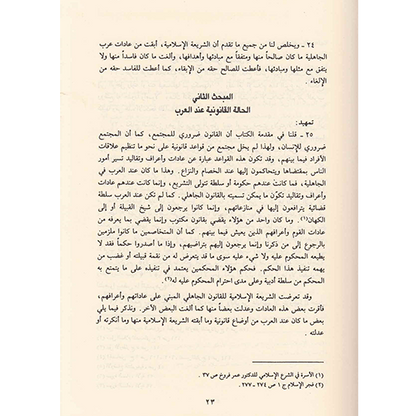 ٢٤ ـ ويخلص لنا من جميع ما تقدم أن الشريعة الإسلامية، أبقت من عادات عرب
الجاهلية ما كان صالحاً منها ومتفقاً مع مبادئها وأهدافها، وألغت ما كان فاسداً منها ولا
يتفق مع مثلها ومبادئها، فأعطت للصالح حقه من الإبقاء، كما أعطت للفاسد حقه من
الإلغاء.
المبحث الثاني
الحالة القانونية عند العرب
تمهيد:
٢٥ ـ قلنا في مقدمة الكتاب أن القانون ضروري للمجتمع، كما أن المجتمع
ضروري للإنسان، ولهذا لم يخل مجتمع من قواعد قانونية على نحو ما تنظيم علاقات
الأفراد فيما بينهم، وقد تكون هذه القواعد عبارة عن عادات وأعراف وتقاليد تسير أمور
الناس بمقتضاها ويتحاكمون إليها عند الخصام والنزاع. وهذا ما كان عند العرب في
الجاهلية، فما كانت عندهم حكومة أو سلطة تتولى التشريع، وإنما كانت عندهم عادات
وأعراف وتقاليد تكوّن ما يمكن تسميته بالقانون الجاهلي. كما لم تكن عند العرب سلطة
قضائية يترافعون إليها في منازعاتهم، وإنما كانوا يرجعون إلى شيخ القبيلة أو إلى
الكهان(١). وما كان واحد من هؤلاء يقضي بقانون مكتوب وإنما يقضي بما يعرفه من
عادات القوم وأعرافهم الذين يعيش فيما بينهم. كما أن المتخاصمين ما كانوا ملزمين
بالرجوع إلى من ذكرنا وإنما يرجعون إليهم بتراضيهم، وإذا ما أصدروا حكماً فقد لا
يطيعه المحكوم عليه ولا شيء عليه سوى ما قد يتعرض له من نقمة قبيلته أو غضب من
يهمه تنفيذ هذا الحكم. فحكم هؤلاء المحكمين يعتمد في تنفيذه على ما يتمتع به
المحكم من سلطة أدبية وعلى مدى احترام المحكوم عليه له(٢).
وقد تعرضت الشريعة الإسلامية للقانون الجاهلي المبني على عاداتهم وأعرافهم،
فأقرت بعض هذه العادات وعدلت بعضاً منها كما ألغت البعض الآخر. ونذكر فيما يلي
بعض ما كان عند العرب من أوضاع قانونية وما أبقته الشريعة الإسلامية منها وما أنكرته أو
عدلته.
(١) الأسرة في الشرع الإسلامي للدكتور عمر فروخ ص ٣٧.
(٢) فجر الإسلام ج ١ ص ٢٧٤ ـ ٢٧٧.
٢٣